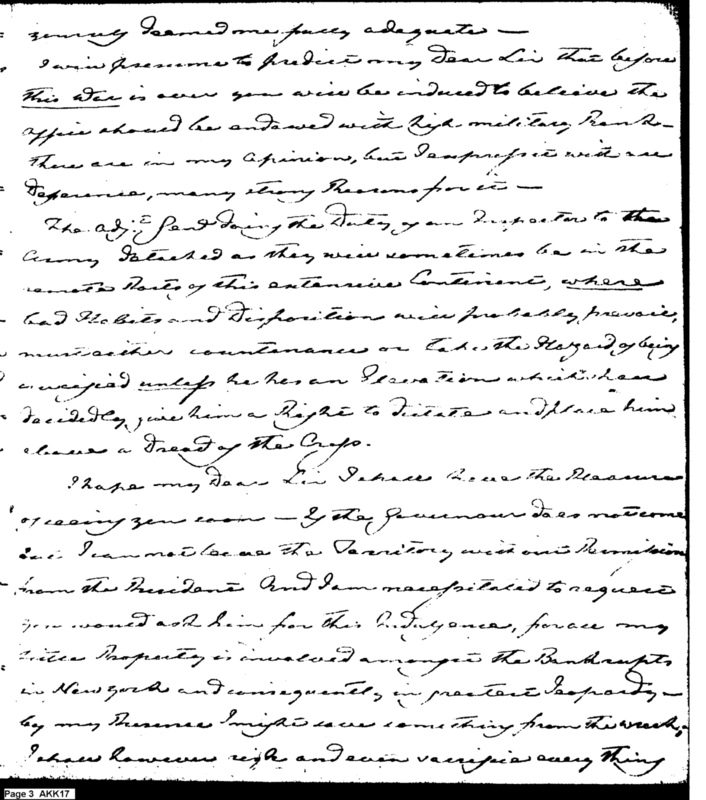 deemed me fully adequate —
I will presume to predict my Dear Sir that before
this War is over you will be induced to believe the
office should be endowed with high military Rank —
there are in my Opinion, but I express it with
Deference, many strong Reasons for it —
The Adjt. Genl. doing the Duty of an Inspector to the
Army detached as they will sometimes be in the
remote Parts of this extensive Continent, where
bad Habits and Disposition will probably prevail,
must either countenance or take the Hazard of being
crucified unless he has an Elevation which shall
decidedly give him a Right to dictate and place him
above a Dread of the Cross.
I hope my Dear Sir I shall have the Pleasure
of seeing you soon — If the Governour does not come
I can not leave the Territory without Permission
from the President And I am necessitated to request
you would ask him for this Indulgence, for all my
little Property is involved amongst the Bankrupts
in New York and consequently in greatest Jeopardy —
by my Presence I might save something from the wreck,
I shall however risk and even sacrifice every thing
Page 3 AKK17